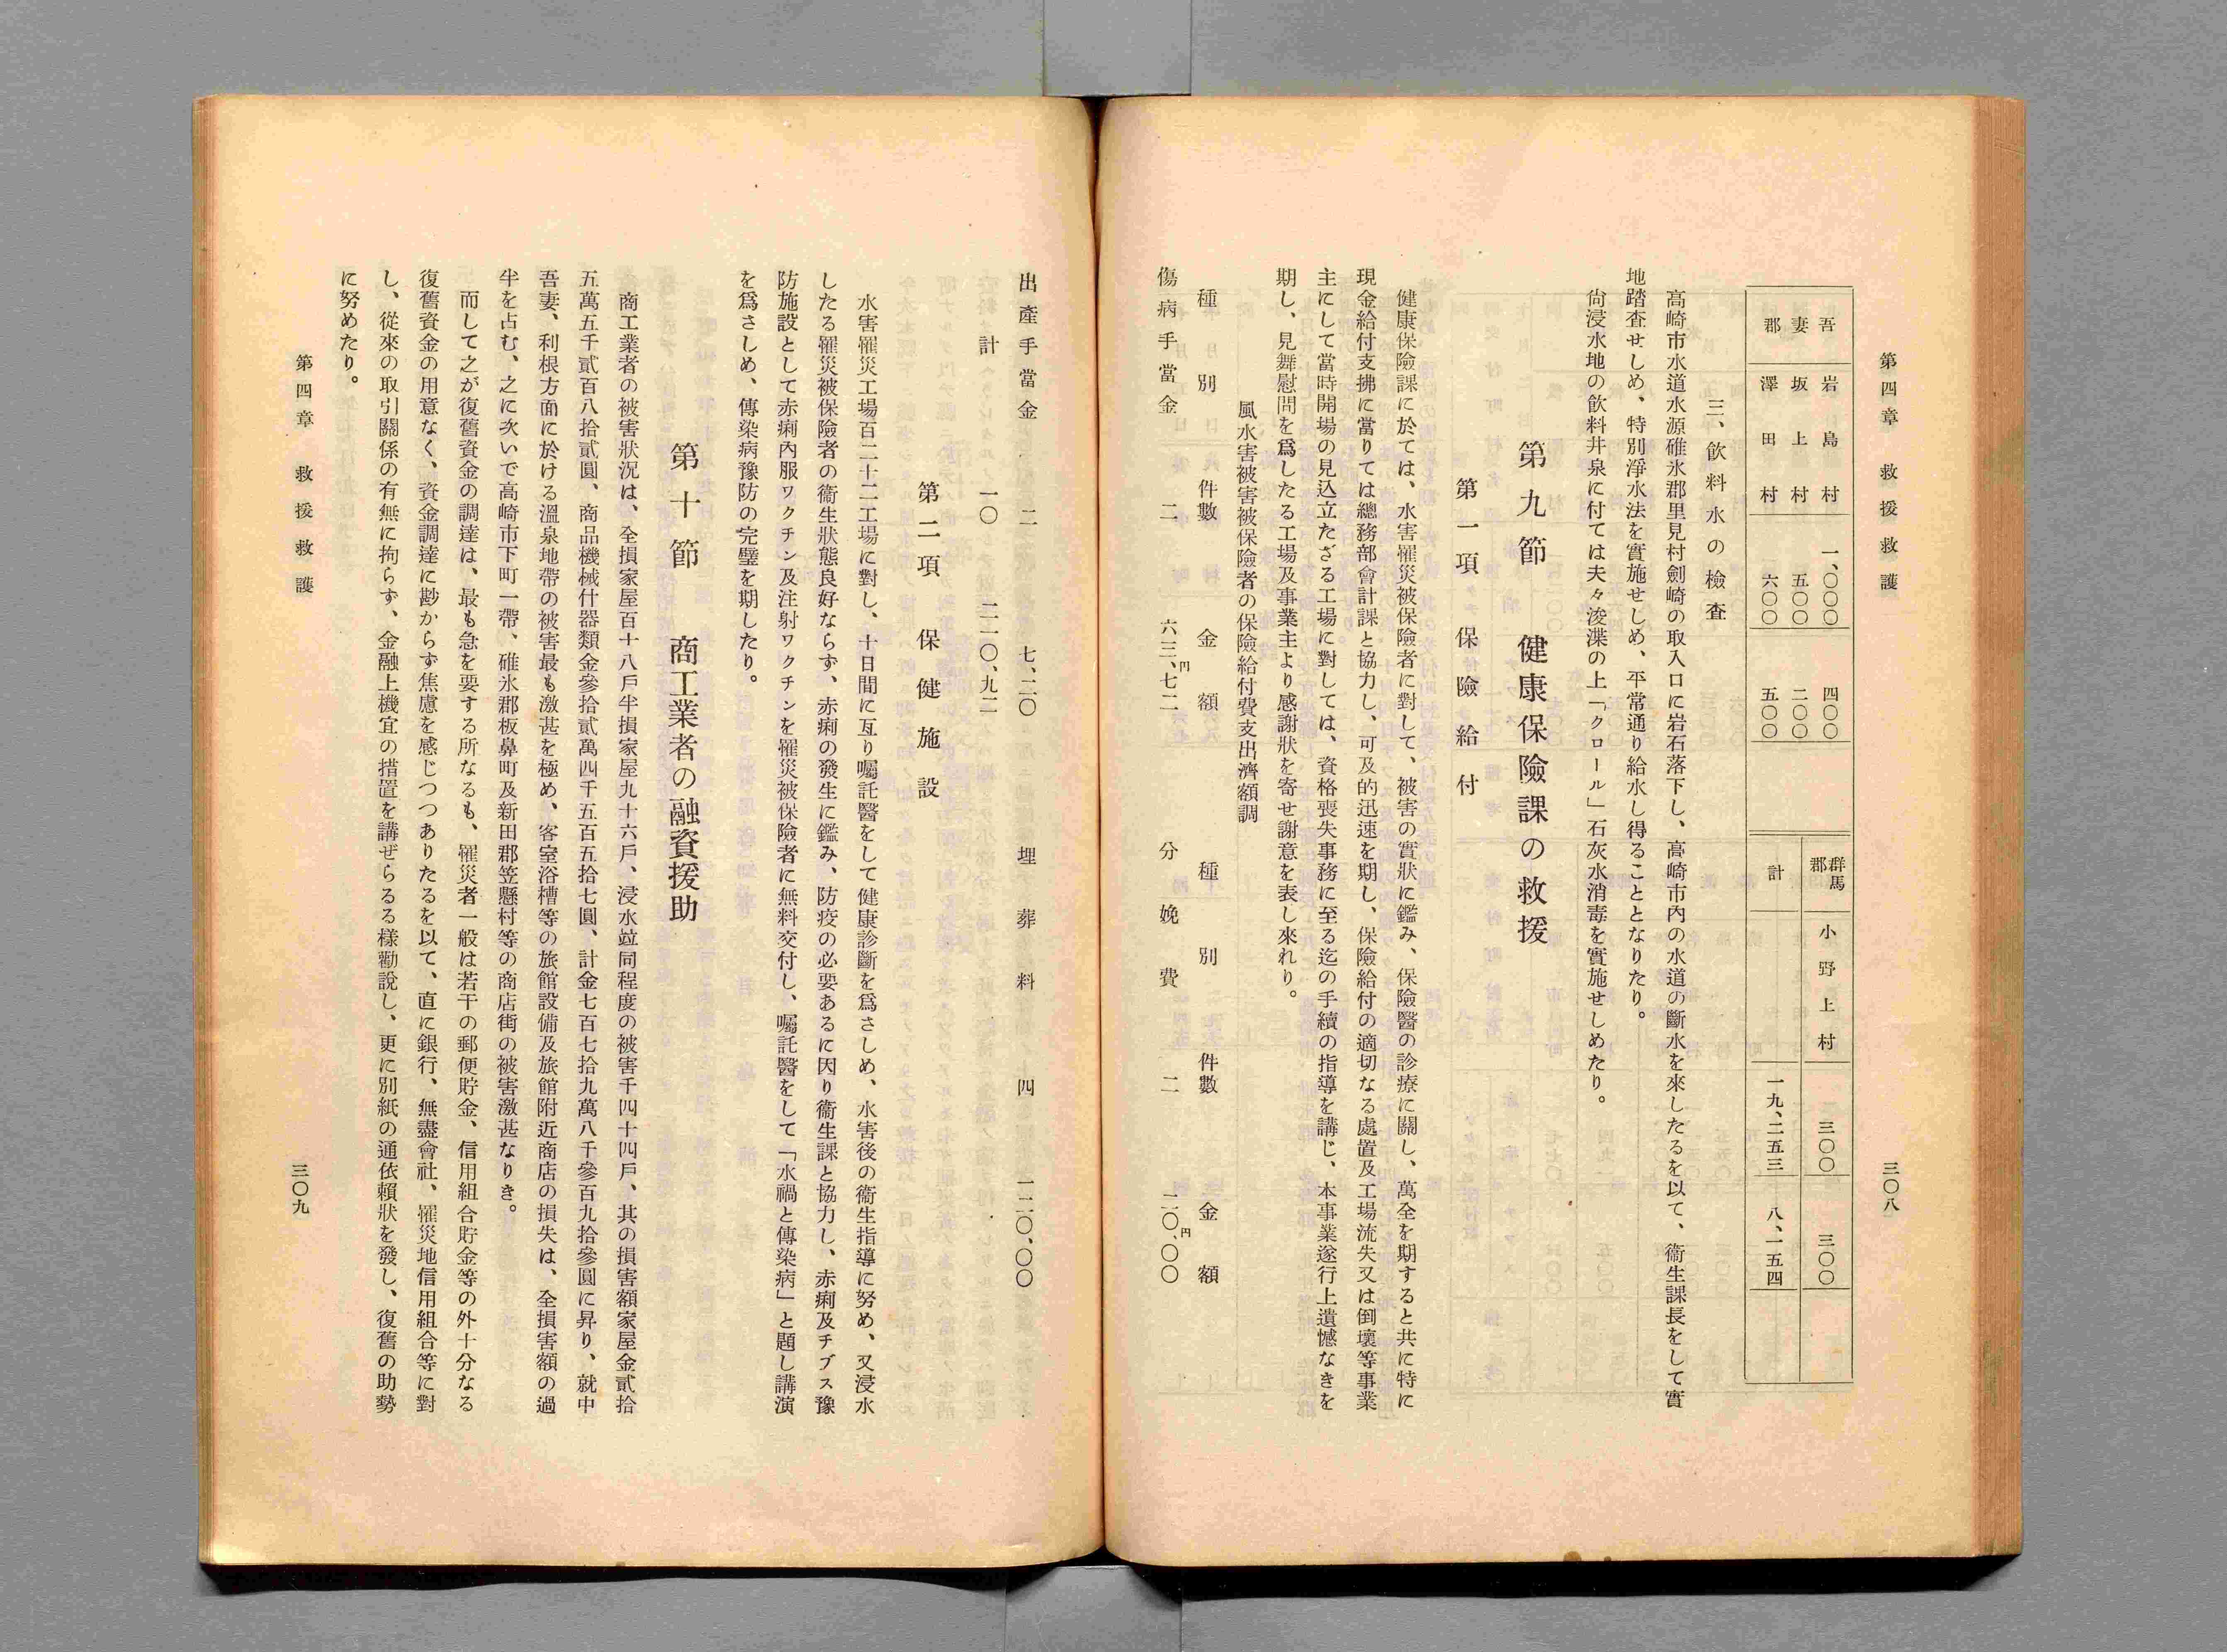 第四章 救援救護
三〇八
吾妻郡
岩島村 一、〇〇〇 四〇〇
坂上村 五〇〇 二〇〇
澤田村 六〇〇 五〇〇
群馬郡 小野上村 三〇〇 三〇〇
計 一九、二五三 八、一五四
三、飮料水の檢査
高崎市水道水源碓氷郡里見村劍崎の取入口に岩石落下し、高崎市內の水道の斷水を來したるを以て、衞生課長をして實
地踏査せしめ、特別淨水法を實施せしめ、平常通り給水し得ることとなりたり。
尙浸水地の飮料井泉に付ては夫々浚渫の上「クロール」石灰水消毒を實施せしめたり。
第九節 健康保險課の救援
第一項 保險給付
健康保險課に於ては、水害罹災被保險者に對して、被害の實狀に鑑み、保險醫の診療に關し、萬全を期すると共に特に
現金給付支拂に當りては總務部會計課と協力し、可及的迅速を期し、保險給付の適切なる處置及工場流失又は倒壞等事業
主にして當時開場の見込立たざる工場に對しては、資格喪失事務に至る迄の手續の指導を講じ、本事業遂行上遺憾なきを
期し、見舞慰問を爲したる工場及事業主より感謝狀を寄せ謝意を表し來れり。
風水害被害被保險者の保險給付費支出濟額調
種別 件數 金額 種別 件數 金額
傷病手當金 二 六三、七二円 分娩費 二 二〇、〇〇円
出產手當金 二 七、二〇 埋葬料 四 一二〇、〇〇
計 一〇 二一〇、九二
第二項 保健施設
水害罹災工場百二十二工場に對し、十日間に亙り囑託醫をして健康診斷を爲さしめ、水害後の衞生指導に努め、又浸水
したる罹災被保險者の衞生狀態良好ならず、赤痢の發生に鑑み、防疫の必要あるに因り衞生課と協力し、赤痢及チブス豫
防施設として赤痢內服ワクチン及注射ワクチンを罹災被保險者に無料交付し、囑託醫をして「水禍と傳染病」と題し講演
を爲さしめ、傳染病豫防の完璧を期したり。
第十節 商工業者の融資援助
商工業者の被害狀況は、全損家屋百十八戶半損家屋九十六戶、浸水竝同程度の被害千四十四戶、其の損害額家屋金貳拾
五萬五千貳百八拾貳圓、商品機械什器類金參拾貳萬四千五百五拾七圓、計金七百七拾九萬八千參百九拾參圓に昇り、就中
吾妻、利根方面に於ける溫泉地帶の被害最も激甚を極め、客室浴槽等の旅館設備及旅館附近商店の損失は、全損害額の過
半を占む、之に次いで高崎市下町一帶、碓氷郡板鼻町及新田郡笠懸村等の商店街の被害激甚なりき。
而して之が復舊資金の調達は、最も急を要する所なるも、罹災者一般は若干の郵便貯金、信用組合貯金等の外十分なる
復舊資金の用意なく、資金調達に尠からず焦慮を感じつつありたるを以て、直に銀行、無盡會社、罹災地信用組合等に對
し、從來の取引關係の有無に拘らず、金融上機宜の措置を講ぜらるる樣勸說し、更に別紙の通依賴狀を發し、復舊の助勢
に努めたり。
第四章 救援救護
三〇九